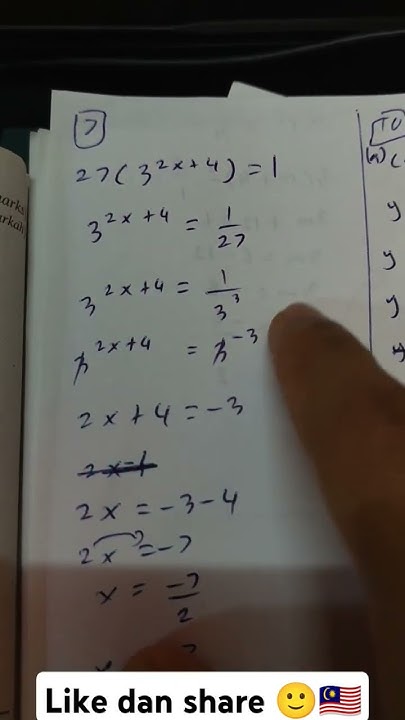 7
27(3^{2x+4}) = 1
3^{2x+4} = \frac{1}{27}
3^{2x+4} = \frac{1}{3^3}
3^{2x+4} = 3^{-3}
2x+4 = -3
2x = -3-4
2x = -7
x = \frac{-7}{2}
(a)
y
y
y
Like dan share 🙂🇲🇾